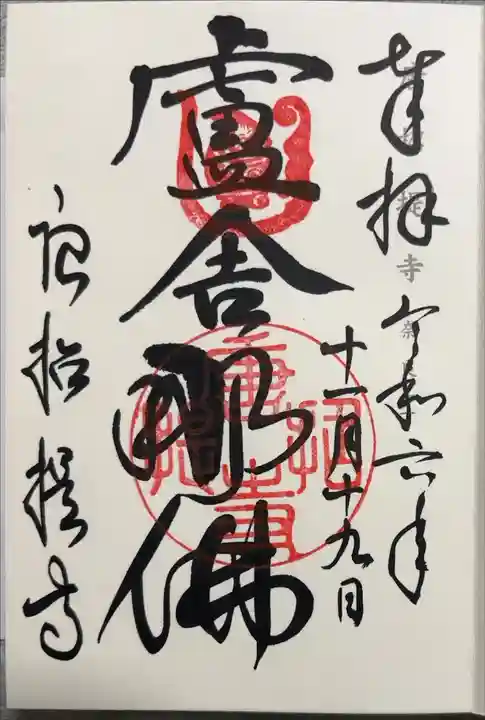 奉拝
令和六年
十一月十九日
盧舎那佛
唐招提寺